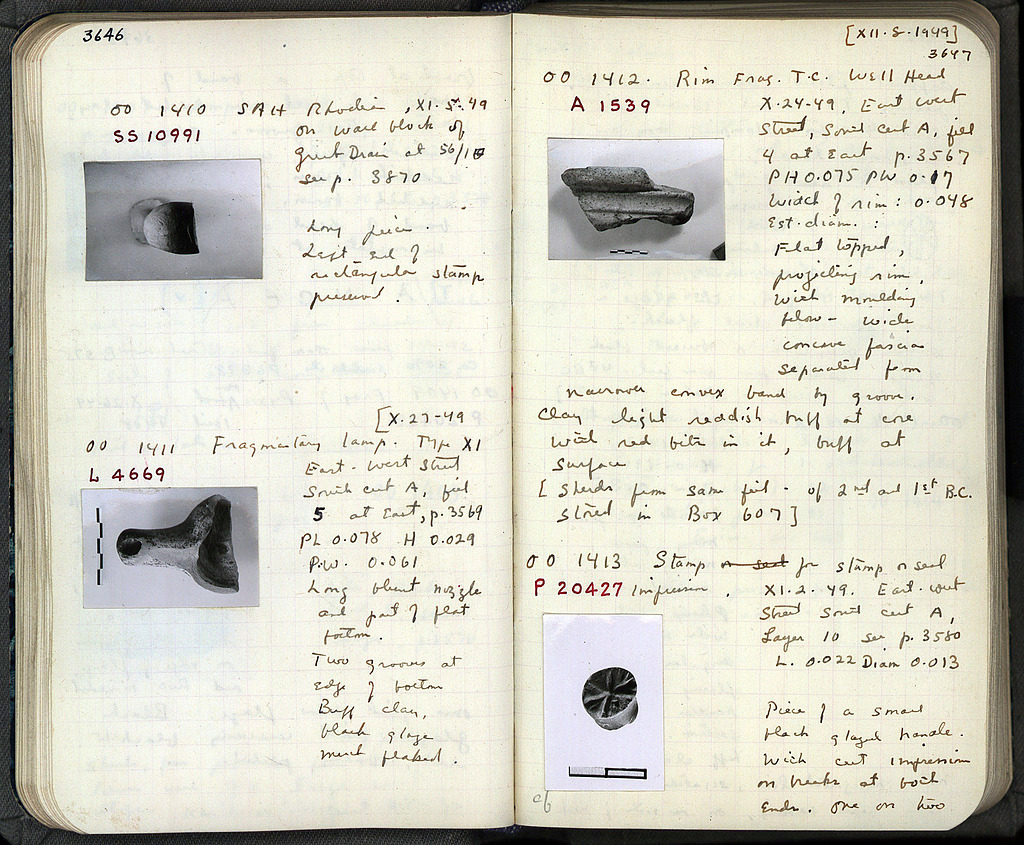 3646
OO 1410 SAH Rhodian, XI.5.49
SS 10991
on wall block of
Great Drain at 56/
see p. 3870
Long piece.
Left end of
rectangular stamp
preserved.
[X.27-49
OO 1411 Fragmentary lamp. Type XI
L 4669
East-West Street
South cut A, fill
5 at East, p. 3569
PL 0.078 H 0.029
P.W. 0.061
Long blunt nozzle
and part of flat
bottom.
Two grooves at
edge of bottom
Buff clay,
black glaze
much flaked.
[XII.8.1949]
3647
OO 1412. Rim Frag. T.C. Well Head
A 1539
X.24-49, East West
Street, South cut A, fill
4 at East p. 3567
PH 0.075 PW 0.17
Width of rim: 0.048
Est. diam. :
Flat topped,
projecting rim,
with moulding
below - wide
concave fascia
separated from
narrower convex band by groove.
Clay light reddish buff at core
with red bits in it, buff at
surface
[Sherds from same fill - of 2nd and 1st B.C.
stored in Box 607]
OO 1413 Stamp or seal for stamp or seal
P 20427 impression.
XI.2.49. East-West
Street South cut A,
Layer 10 see p. 3580
L. 0.022 Diam 0.013
Piece of a small
black glazed handle.
With cut impression
on breaks at both
ends. one on two
cf